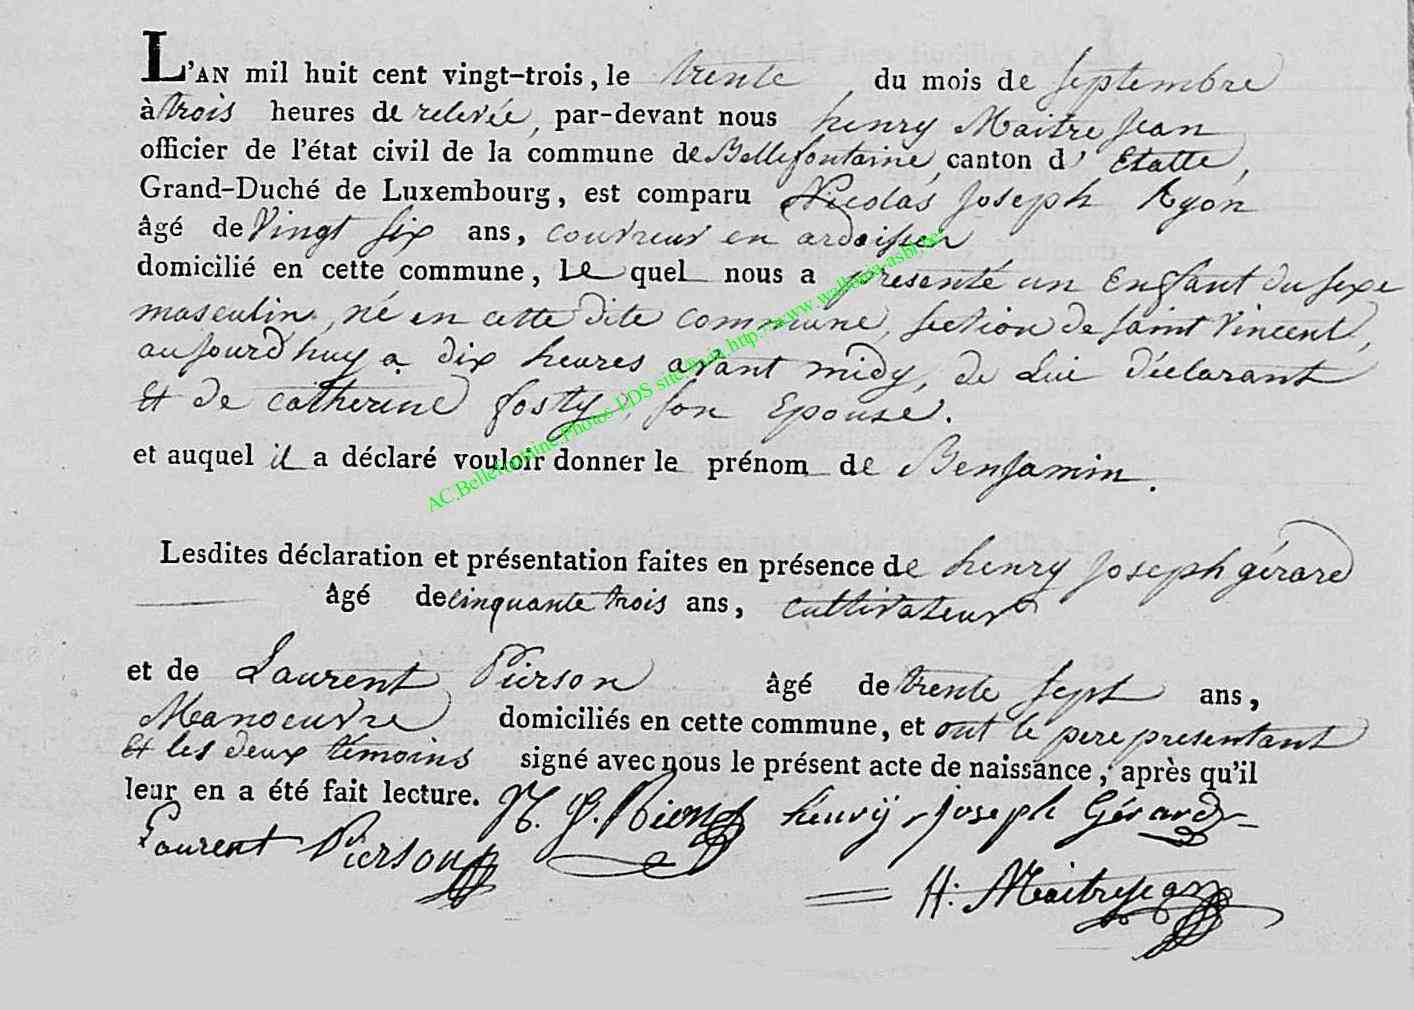 L'AN mil huit cent vingt-trois, le trente du mois de septembre
à trois heures de relevée, par-devant nous henry Maitre Jean
officier de l'état civil de la commune de Bellefontaine, canton d' Etalle,
Grand-Duché de Luxembourg, est comparu Nicolas Joseph Ryon
âgé de Vingt six ans, couvreur en ardoises
domicilié en cette commune, le quel nous a presenté un Enfant du sexe
masculin, né en cette dite commune, section de saint Vincent,
aujourd'huy a dix heures avant midy, de Lui déclarant
Et de catherine fosty, son Epouse.
et auquel il a déclaré vouloir donner le prénom de Benjamin.
AC.Bellefontaine.Photos LDS sur http://www.wallonia-asbl.be/
Lesdites déclaration et présentation faites en présence de henry Joseph gérard
âgé de cinquante trois ans, cultivateur
et de Laurent Pierson âgé de trente sept ans,
Manoeuvre domiciliés en cette commune, et ont le pere presentant
Et les deux témoins signé avec nous le présent acte de naissance, après qu'il
leur en a été fait lecture. N. J. Rion henrÿ joseph Gérard
Laurent Pierson
H: Maitrejean